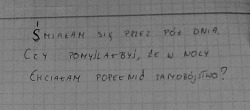 ŚMIAŁAM SIĘ PRZEZ PÓŁ DNIA.
CZY POMYŚLAŁBYŚ, ŻE W NOCY
CHCIAŁAM POPEŁNIĆ SAMOBÓJSTWO?